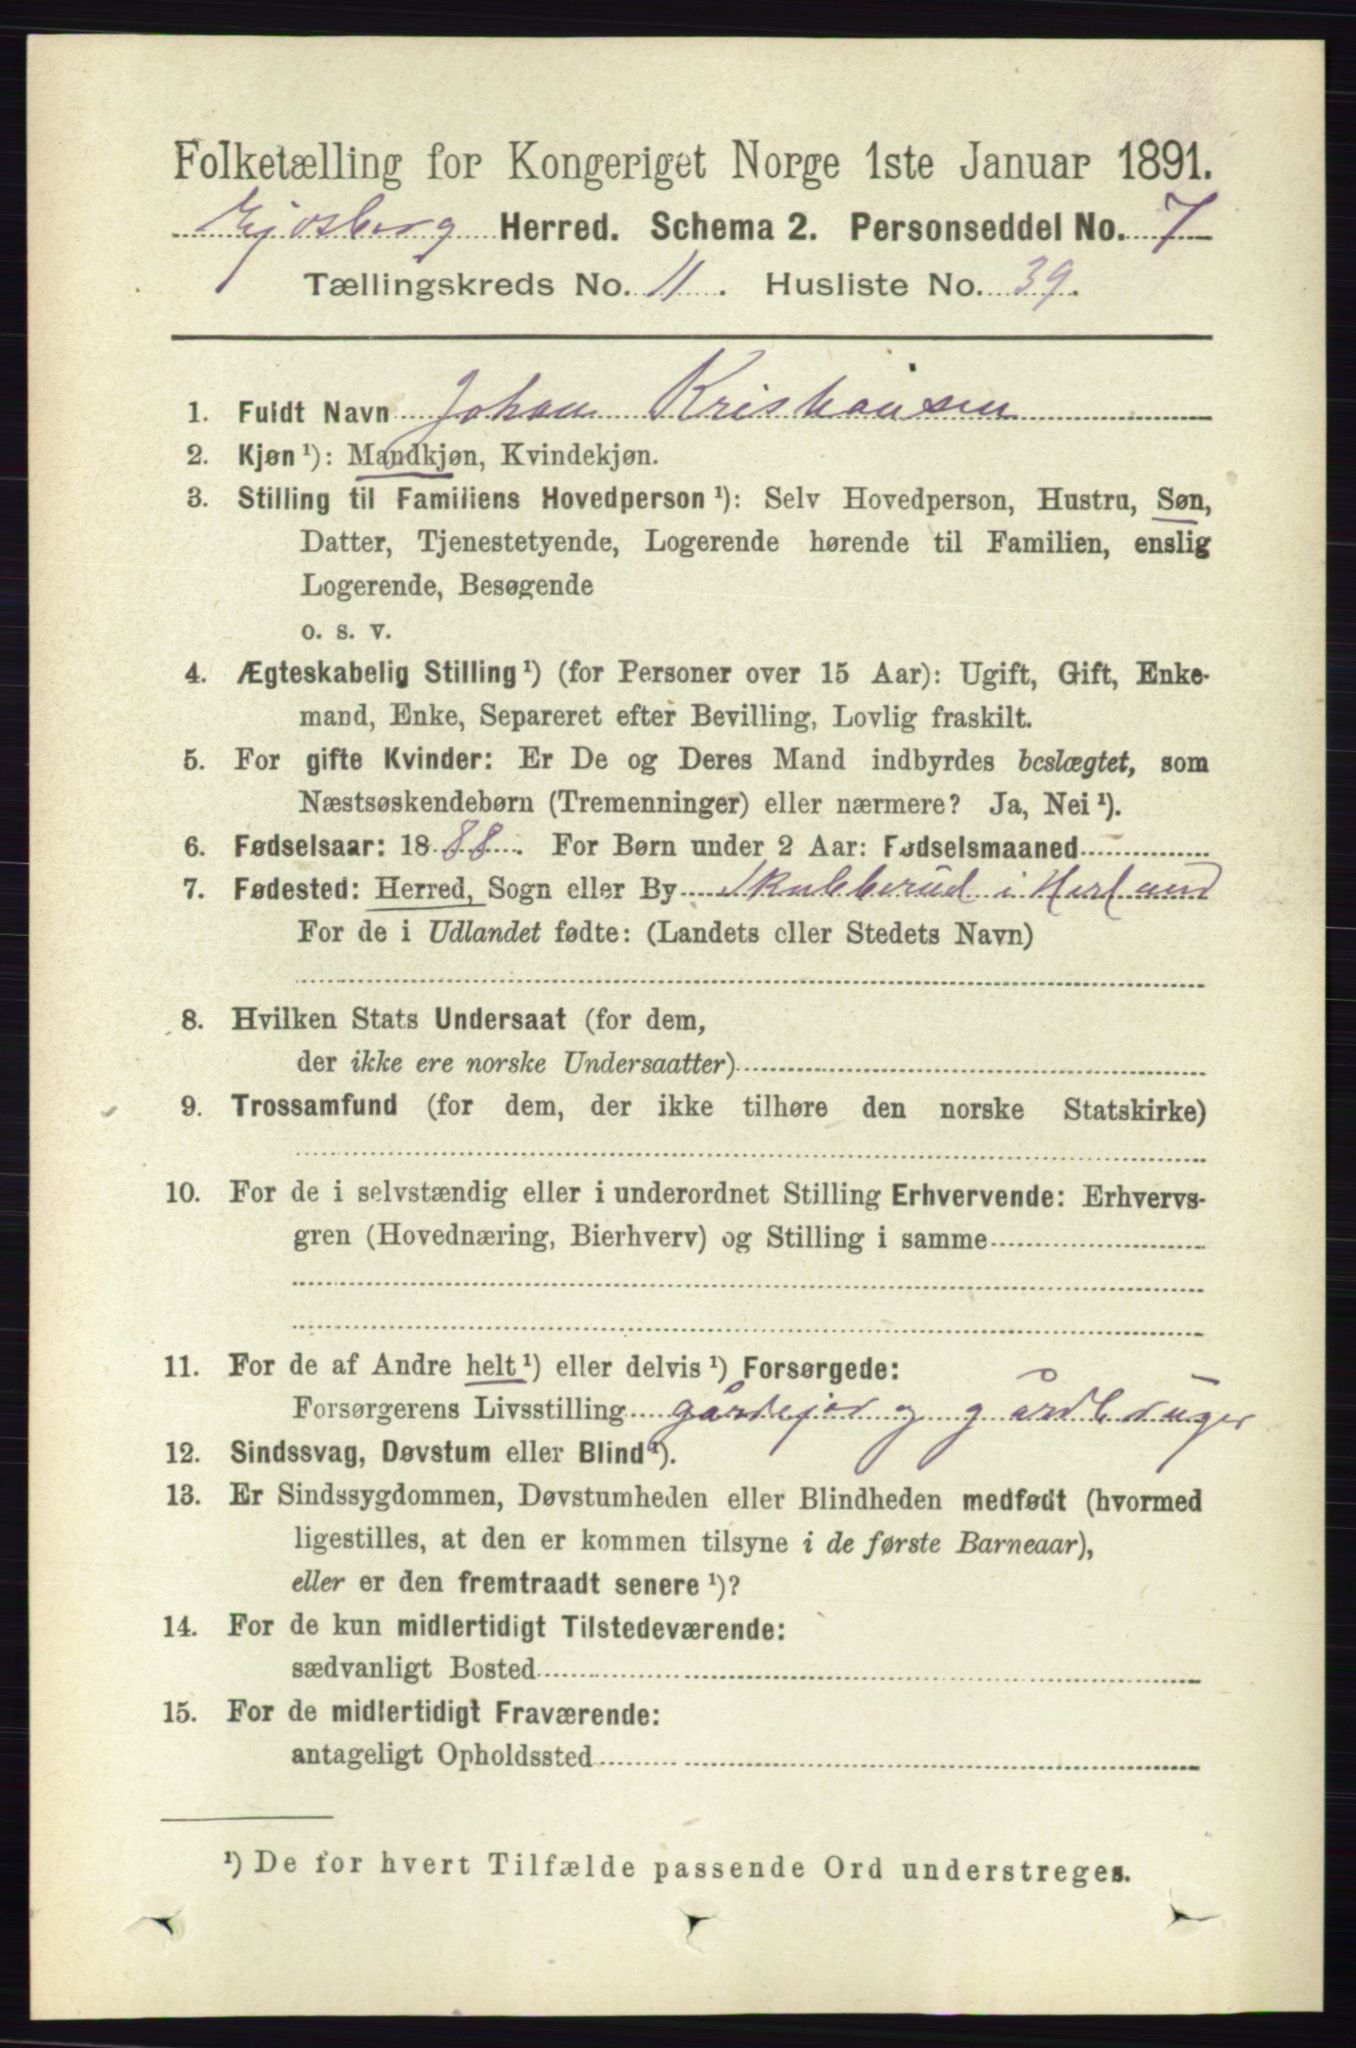 Folketælling for Kongeriget Norge 1ste Januar 1891.
Herred. Schema 2. Personseddel No. 7
Tællingskreds No. 11. Husliste No. 39.
1. Fuldt Navn Johan Kristiansen
2. Kjøn ¹): Mandkjøn, Kvindekjøn.
3. Stilling til Familiens Hovedperson ¹): Selv Hovedperson, Hustru, Søn,
Datter, Tjenestetyende, Logerende hørende til Familien, enslig
Logerende, Besøgende
o. s. v.
4. Ægteskabelig Stilling ¹) (for Personer over 15 Aar): Ugift, Gift, Enke-
mand, Enke, Separeret efter Bevilling, Lovlig fraskilt.
5. For gifte Kvinder: Er De og Deres Mand indbyrdes beslægtet, som
Næstsøskendebørn (Tremenninger) eller nærmere? Ja, Nei ¹).
6. Fødselsaar: 1888. For Børn under 2 Aar: Fødselsmaaned
7. Fødested: Herred, Sogn eller By Skubberud i Herland
For de i Udlandet fødte: (Landets eller Stedets Navn)
8. Hvilken Stats Undersaat (for dem,
der ikke ere norske Undersaatter)
9. Trossamfund (for dem, der ikke tilhøre den norske Statskirke)
10. For de i selvstændig eller i underordnet Stilling Erhvervende: Erhvervs-
gren (Hovednæring, Bierhverv) og Stilling i samme
11. For de af Andre helt ¹) eller delvis ¹) Forsørgede:
Forsørgerens Livsstilling gårdejer og gårdbruger
12. Sindssvag, Døvstum eller Blind ¹).
13. Er Sindssygdommen, Døvstumheden eller Blindheden medfødt (hvormed
ligestilles, at den er kommen tilsyne i de første Barneaar),
eller er den fremtraadt senere ¹)?
14. For de kun midlertidigt Tilstedeværende:
sædvanligt Bosted
15. For de midlertidigt Fraværende:
antageligt Opholdssted
¹) De for hvert Tilfælde passende Ord understreges.